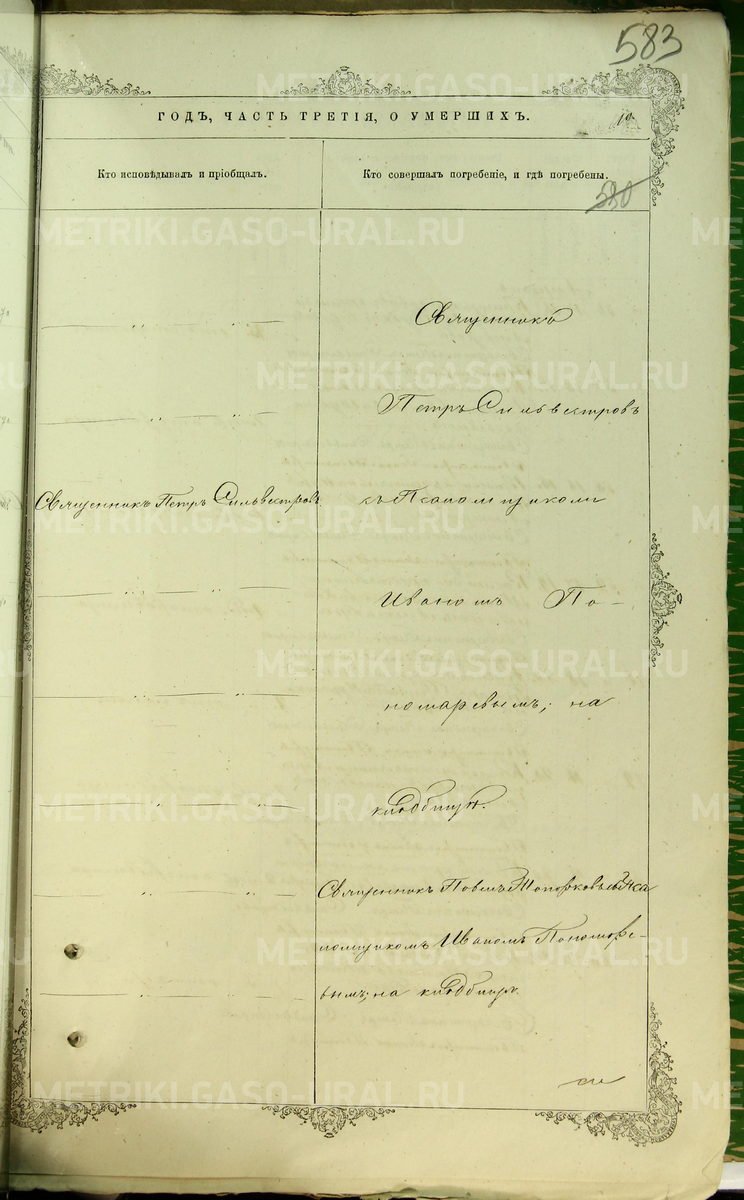 583
ГОДЪ, ЧАСТЬ ТРЕТІЯ, О УМЕРШИХЪ.
10.
Кто исповѣдывалъ и пріобщалъ.
Кто совершалъ погребеніе, и гдѣ погребены.
580
Священникъ
Петръ Сильвестровъ
Священникъ Петръ Сильвестровъ
съ Псаломщикомъ
Иваномъ По-
номаревымъ; на
кладбищѣ.
Священникъ Павелъ Топорковъ съ Пса
ломщикомъ Иваномъ Пономаре-
вымъ; на кладбищѣ.
METRIKI.GASO-URAL.RU